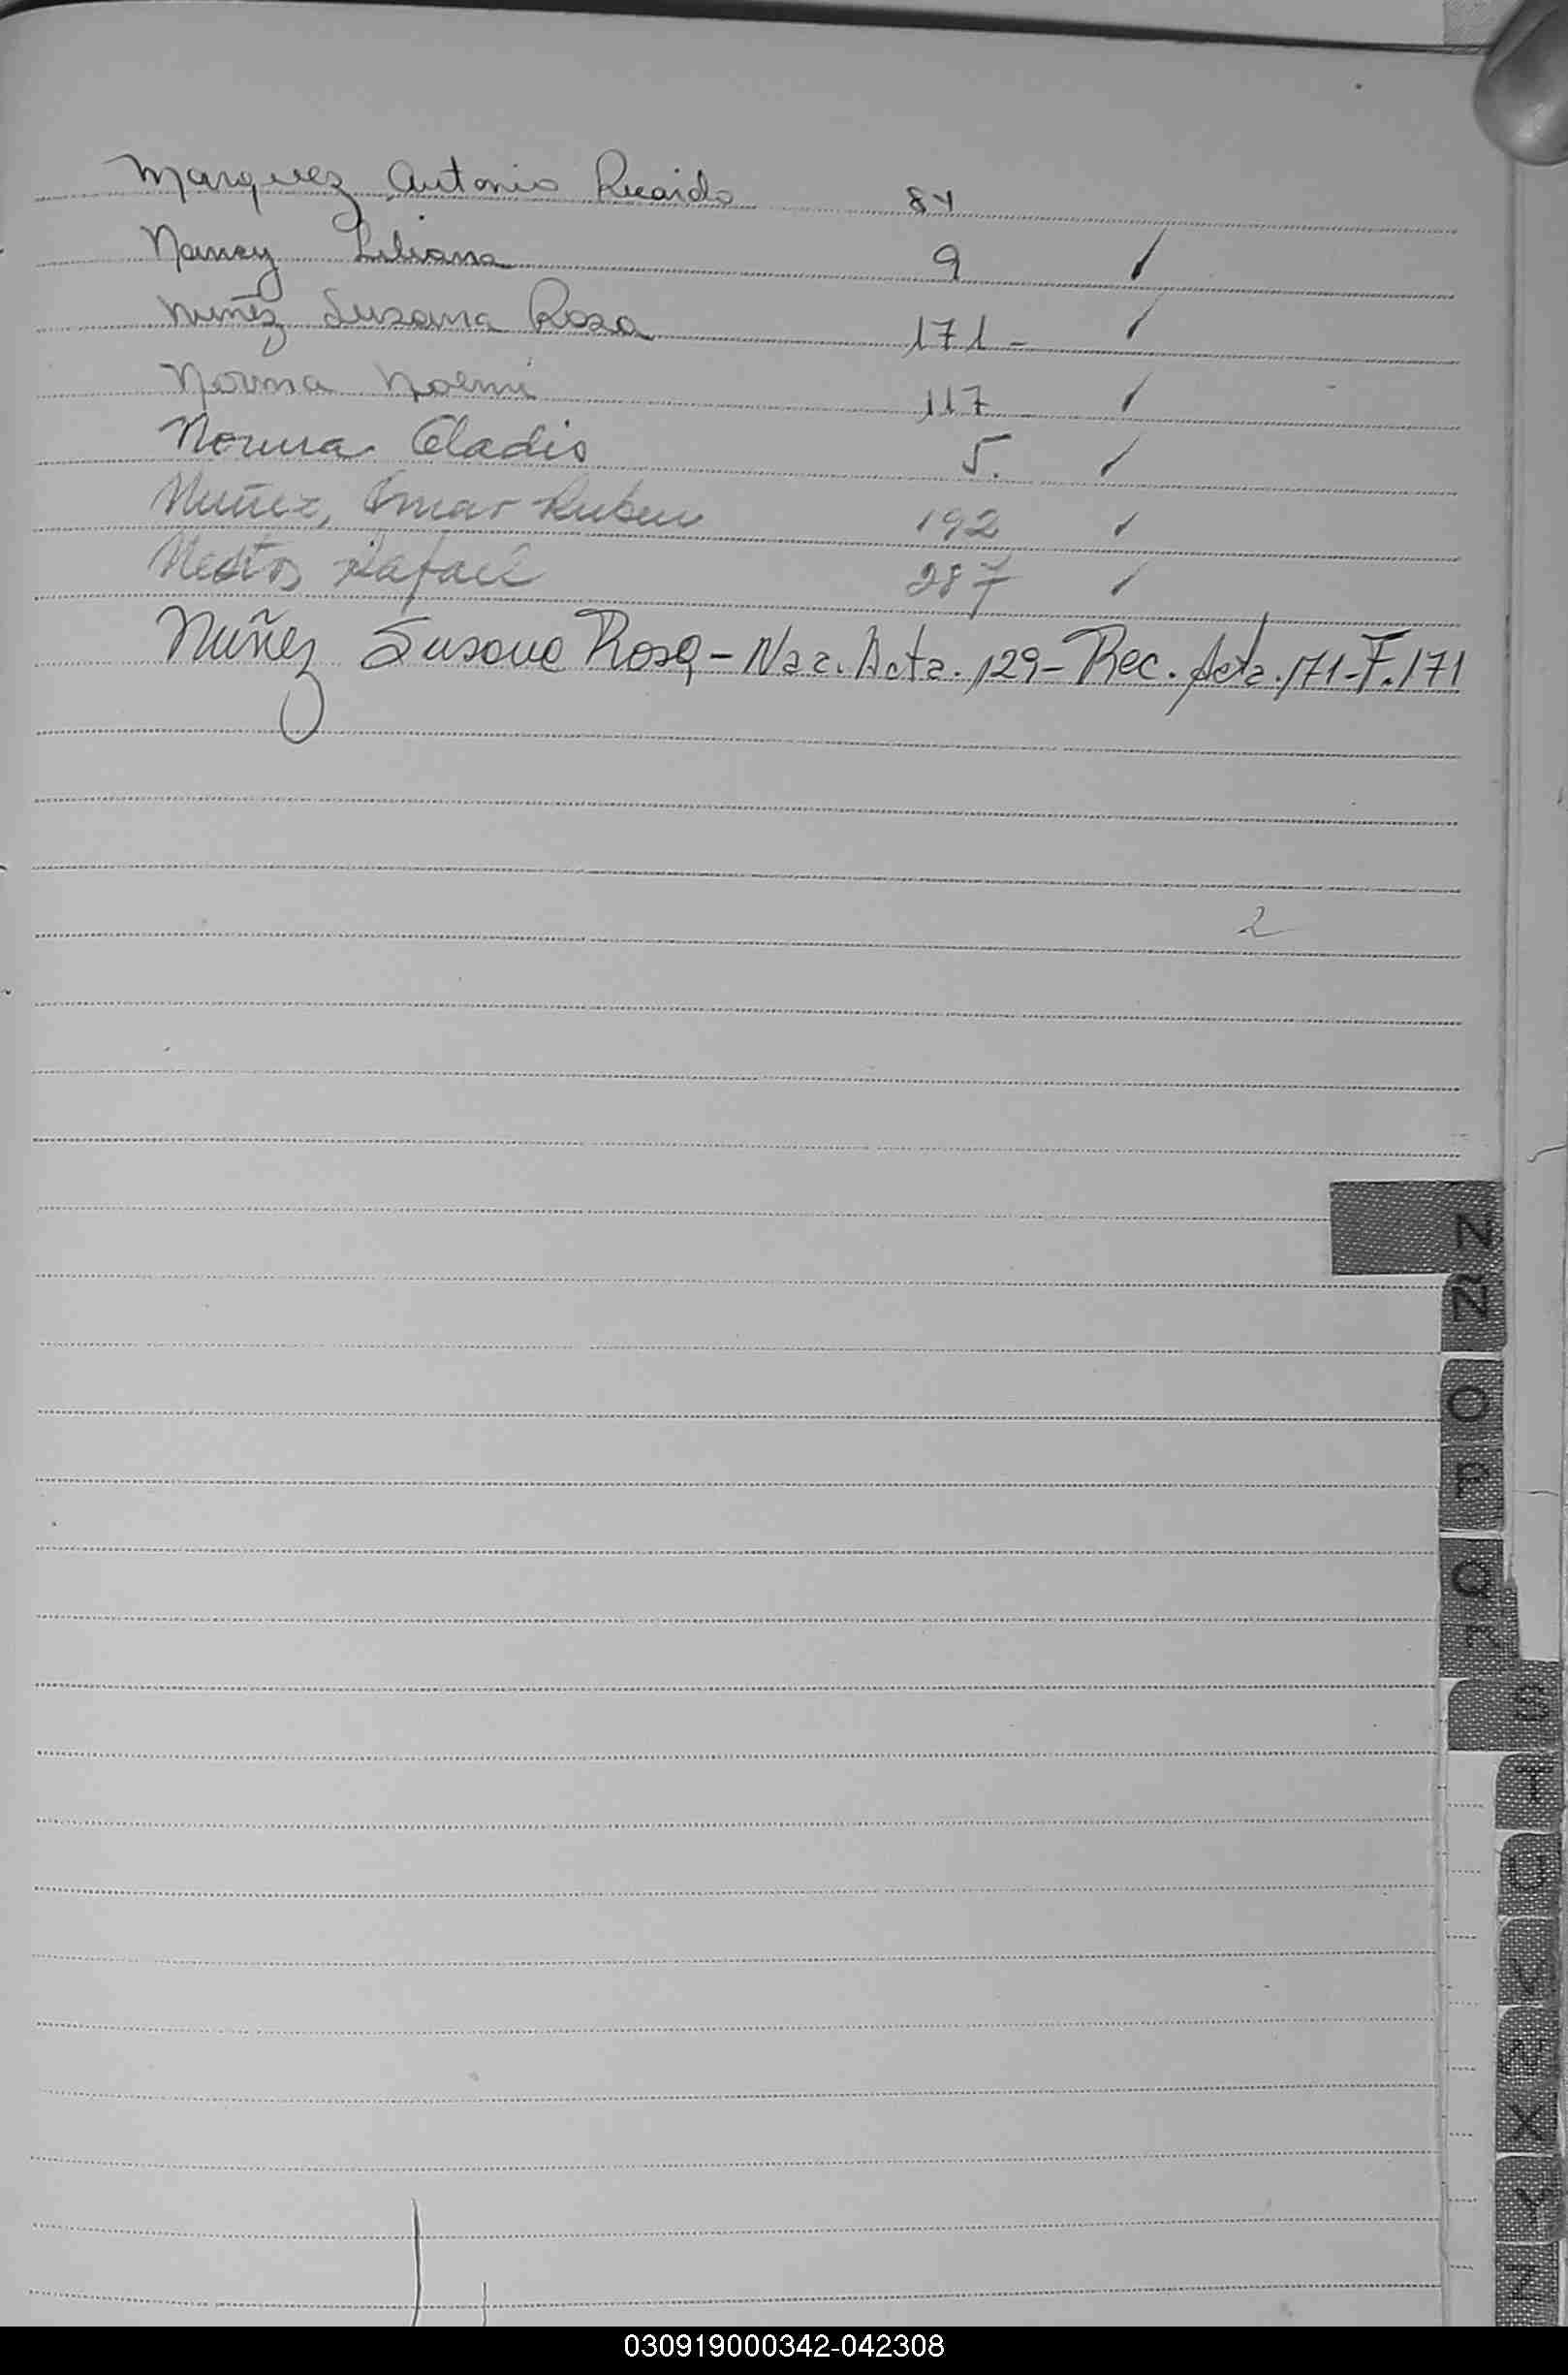 Marquez Antonio Ricardo 84
Nancy Liliana 9 ✓
Nuñez Susana Rosa 171 - ✓
Norma Noemi 117 ✓
Norma Gladis 5. ✓
Nuñez, Omar Ruben 192 ✓
Nestor Rafael 287 ✓
Nuñez Susana Rosa - Nac. Acta. 129 - Rec. Acta. 171 - F. 171
2
N
Ñ
O
P
Q
R
S
T
U
V
W
X
Y
Z
030919000342-042308